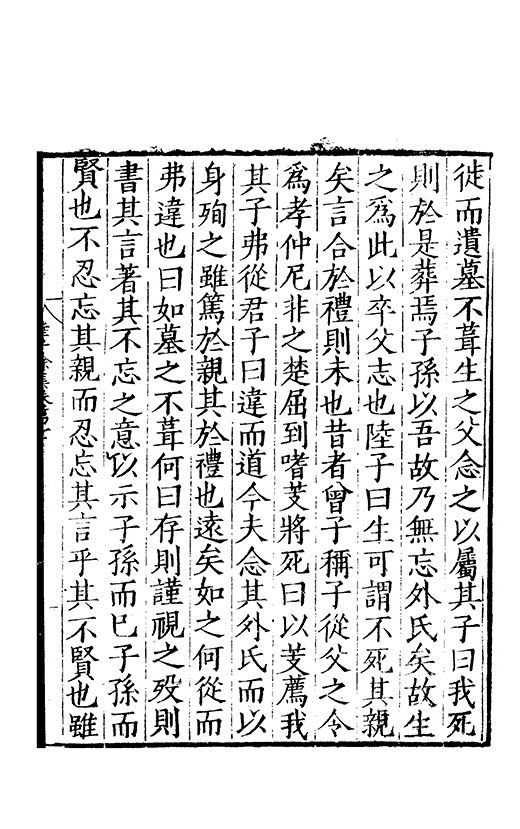 徙而遺墓不葺生之父念之以屬其子曰我死
則於是葬焉子孫以吾故乃無忘外氏矣故生
之爲此以卒父志也陸子曰生可謂不死其親
矣言合於禮則未也昔者曾子稱子從父之令
爲孝仲尼非之楚屈到嗜芰將死曰以芰薦我
其子弗從君子曰違而道今夫念其外氏而以
身殉之雖篤於親其於禮也遠矣如之何從而
弗違也曰如墓之不葺何曰存則謹視之歿則
書其言著其不忘之意以示子孫而已子孫而
賢也不忍忘其親而忍忘其言乎其不賢也雖